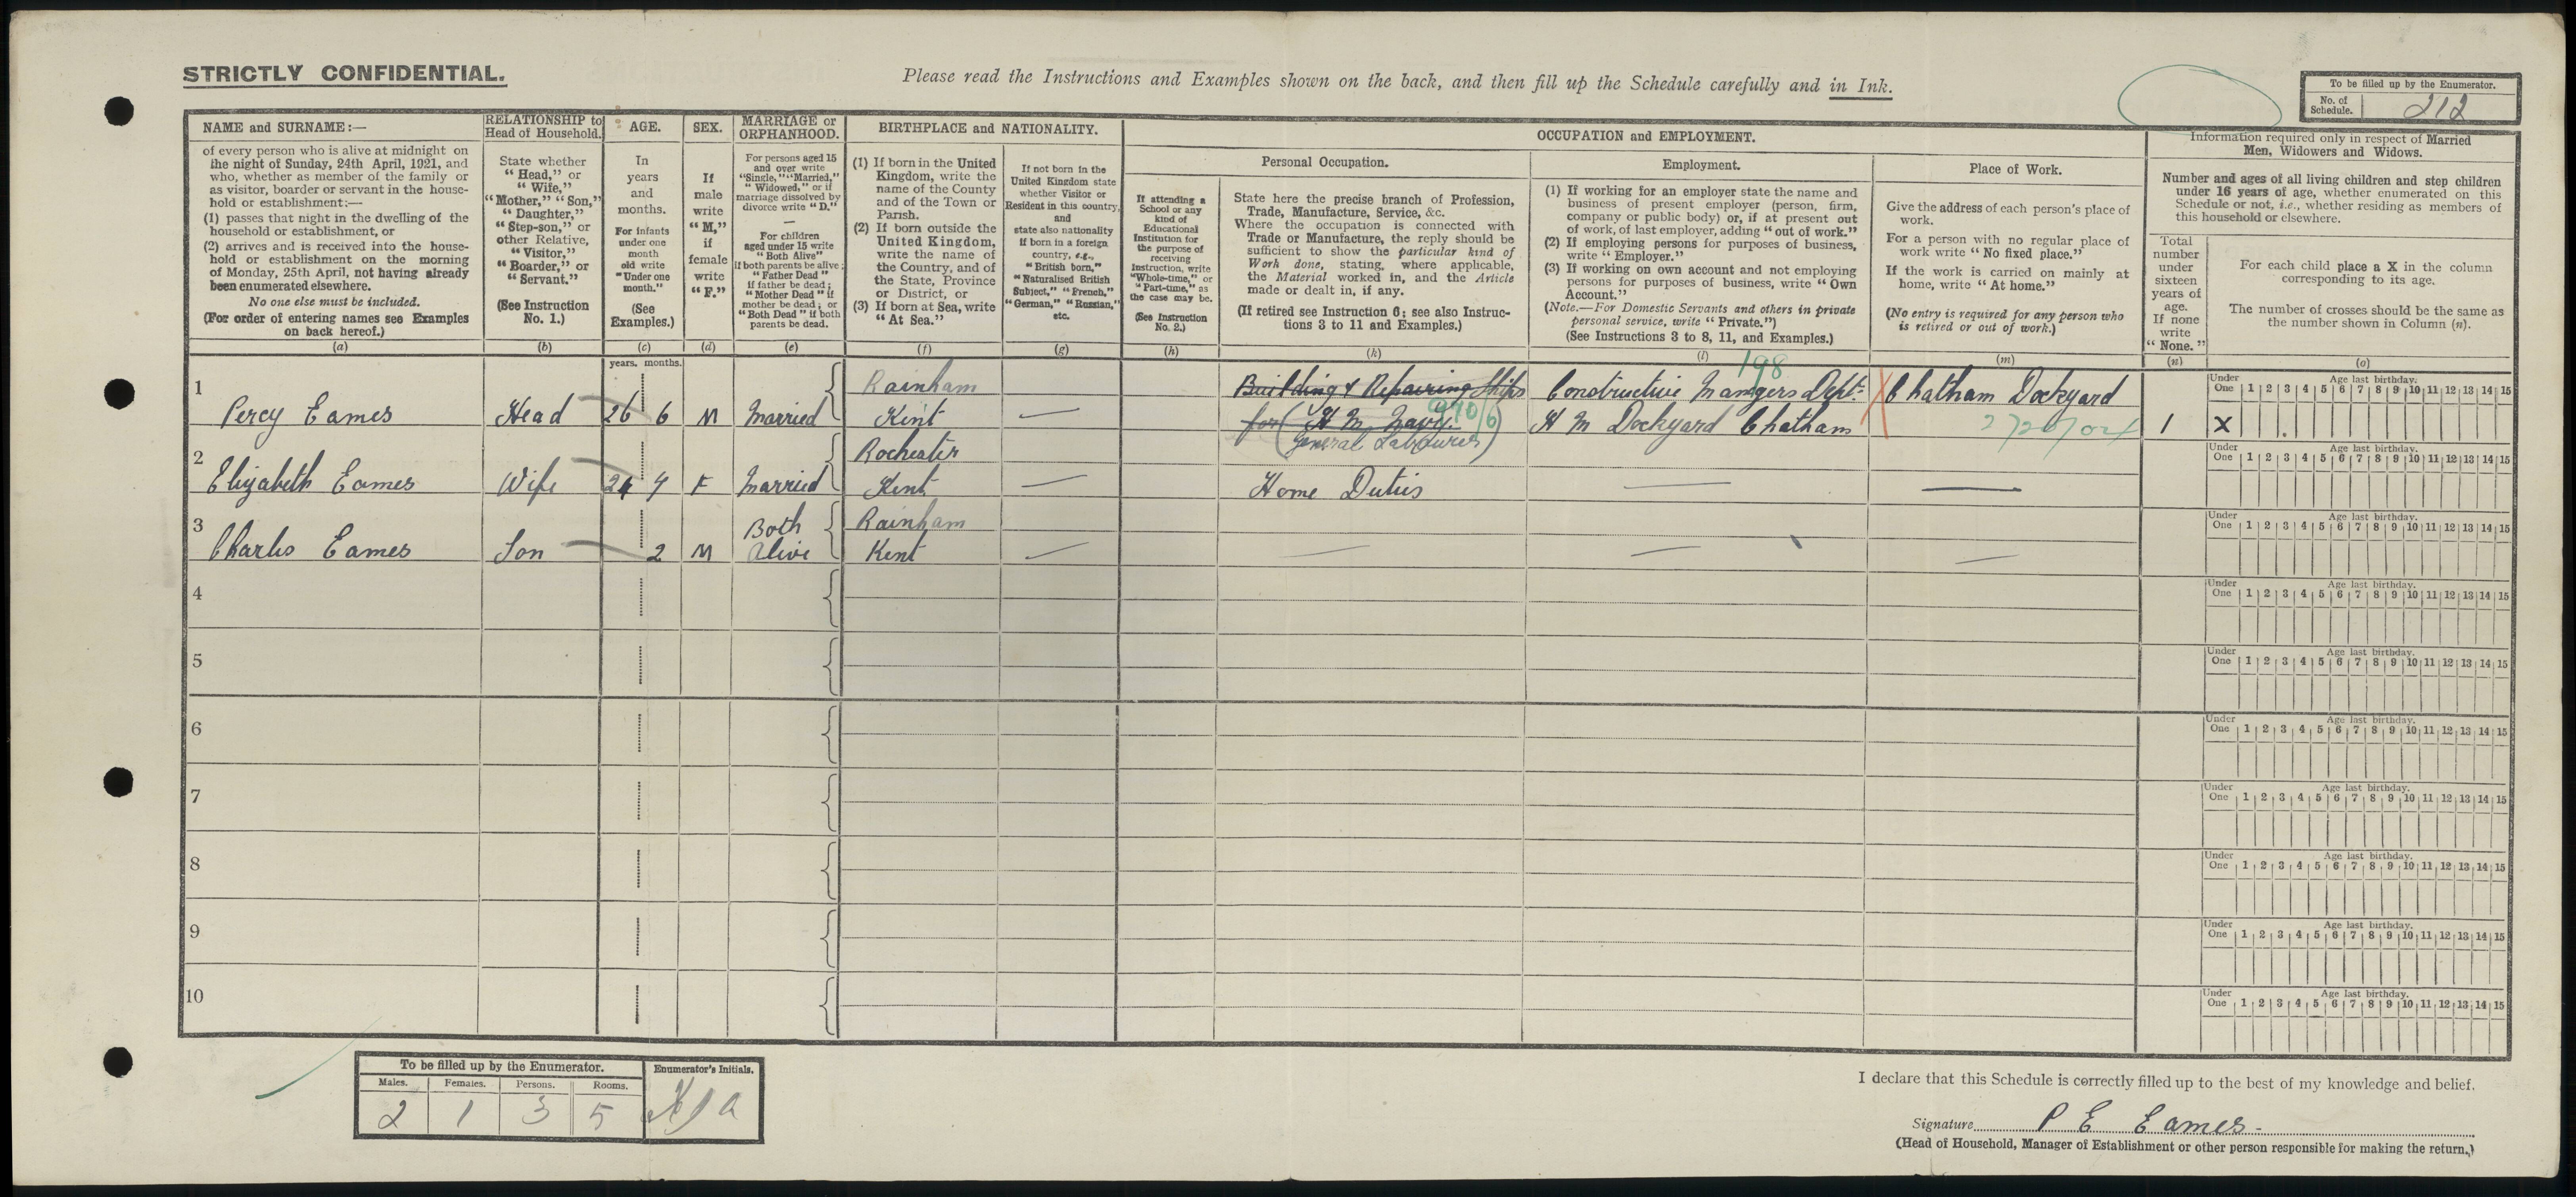 STRICTLY CONFIDENTIAL.
Please read the Instructions and Examples shown on the back, and then fill up the Schedule carefully and in Ink.
To be filled up by the Enumerator.
No. of Schedule. 212
NAME and SURNAME:—
of every person who is alive at midnight on
the night of Sunday, 24th April, 1921, and
who, whether as member of the family or
as visitor, boarder or servant in the house-
hold or establishment:—
(1) passes that night in the dwelling of the
household or establishment, or
(2) arrives and is received into the house-
hold or establishment on the morning
of Monday, 25th April, not having already
been enumerated elsewhere.
No one else must be included.
(For order of entering names see Examples
on back hereof.)
(a)
RELATIONSHIP to
Head of Household.
State whether
"Head," or
"Wife,"
"Mother," "Son,"
"Daughter,"
"Step-son," or
other Relative,
"Visitor,"
"Boarder," or
"Servant."
(See Instruction
No. 1.)
(b)
AGE.
In
years
and
months.
For infants
under one
month
old write
"Under one
month."
(See
Examples.)
(c)
years. months.
SEX.
If
male
write
"M,"
if
female
write
"F."
(d)
MARRIAGE or
ORPHANHOOD.
For persons aged 15
and over write
"Single," "Married,"
"Widowed," or if
marriage dissolved by
divorce write "D."
—
For children
aged under 15 write
"Both Alive"
if both parents be alive;
"Father Dead"
if father be dead;
"Mother Dead" if
mother be dead; or
"Both Dead" if both
parents be dead.
(e)
BIRTHPLACE and NATIONALITY.
(1) If born in the United
Kingdom, write the
name of the County
and of the Town or
Parish.
(2) If born outside the
United Kingdom,
write the name of
the Country, and of
the State, Province
or District, or
(3) If born at Sea, write
"At Sea."
(f)
If not born in the
United Kingdom state
whether Visitor or
Resident in this country,
and
state also nationality
if born in a foreign
country, e.g.,
"British born,"
"Naturalised British
Subject," "French,"
"German," "Russian,"
etc.
(g)
OCCUPATION and EMPLOYMENT.
If attending a
School or any
kind of
Educational
Institution for
the purpose of
receiving
instruction, write
"Whole-time," or
"Part-time," as
the case may be.
(See Instruction
No. 2.)
(h)
Personal Occupation.
State here the precise branch of Profession,
Trade, Manufacture, Service, &c.
Where the occupation is connected with
Trade or Manufacture, the reply should be
sufficient to show the particular kind of
Work done, stating, where applicable,
the Material worked in, and the Article
made or dealt in, if any.
(If retired see Instruction 6; see also Instruc-
tions 3 to 11 and Examples.)
(k)
Employment.
(1) If working for an employer state the name and
business of present employer (person, firm,
company or public body) or, if at present out
of work, of last employer, adding "out of work."
(2) If employing persons for purposes of business,
write "Employer."
(3) If working on own account and not employing
persons for purposes of business, write "Own
Account."
(Note.—For Domestic Servants and others in private
personal service, write "Private.")
(See Instructions 3 to 8, 11, and Examples.)
(l)
Place of Work.
Give the address of each person's place of
work.
For a person with no regular place of
work write "No fixed place."
If the work is carried on mainly at
home, write "At home."
(No entry is required for any person who
is retired or out of work.)
(m)
Information required only in respect of Married
Men, Widowers and Widows.
Number and ages of all living children and step children
under 16 years of age, whether enumerated on this
Schedule or not, i.e., whether residing as members of
this household or elsewhere.
Total
number
under
sixteen
years of
age.
If none
write
"None."
(n)
For each child place a X in the column
corresponding to its age.
The number of crosses should be the same as
the number shown in Column (n).
(o)
198
1 Rainham Building & Repairing Ships Constructive Mangers Dept. Chatham Dockyard
Percy Eames Head 26 6 M Married Kent — for (H M Navy. 970/6 H M Dockyard Chatham 1 X
(General Labourer)
2 Rochester
Elizabeth Eames Wife 24 7 F Married Kent — Home Duties — —
3 Both Rainham
Charles Eames Son 2 M Alive Kent — — — —
4
5
6
7
8
9
10
Under One Age last birthday. 1 2 3 4 5 6 7 8 9 10 11 12 13 14 15
Under One Age last birthday. 1 2 3 4 5 6 7 8 9 10 11 12 13 14 15
Under One Age last birthday. 1 2 3 4 5 6 7 8 9 10 11 12 13 14 15
Under One Age last birthday. 1 2 3 4 5 6 7 8 9 10 11 12 13 14 15
Under One Age last birthday. 1 2 3 4 5 6 7 8 9 10 11 12 13 14 15
Under One Age last birthday. 1 2 3 4 5 6 7 8 9 10 11 12 13 14 15
Under One Age last birthday. 1 2 3 4 5 6 7 8 9 10 11 12 13 14 15
Under One Age last birthday. 1 2 3 4 5 6 7 8 9 10 11 12 13 14 15
Under One Age last birthday. 1 2 3 4 5 6 7 8 9 10 11 12 13 14 15
Under One Age last birthday. 1 2 3 4 5 6 7 8 9 10 11 12 13 14 15
To be filled up by the Enumerator.
Males. Females. Persons. Rooms.
2 1 3 5
Enumerator's Initials.
I declare that this Schedule is correctly filled up to the best of my knowledge and belief.
Signature P E Eames
(Head of Household, Manager of Establishment or other person responsible for making the return.)